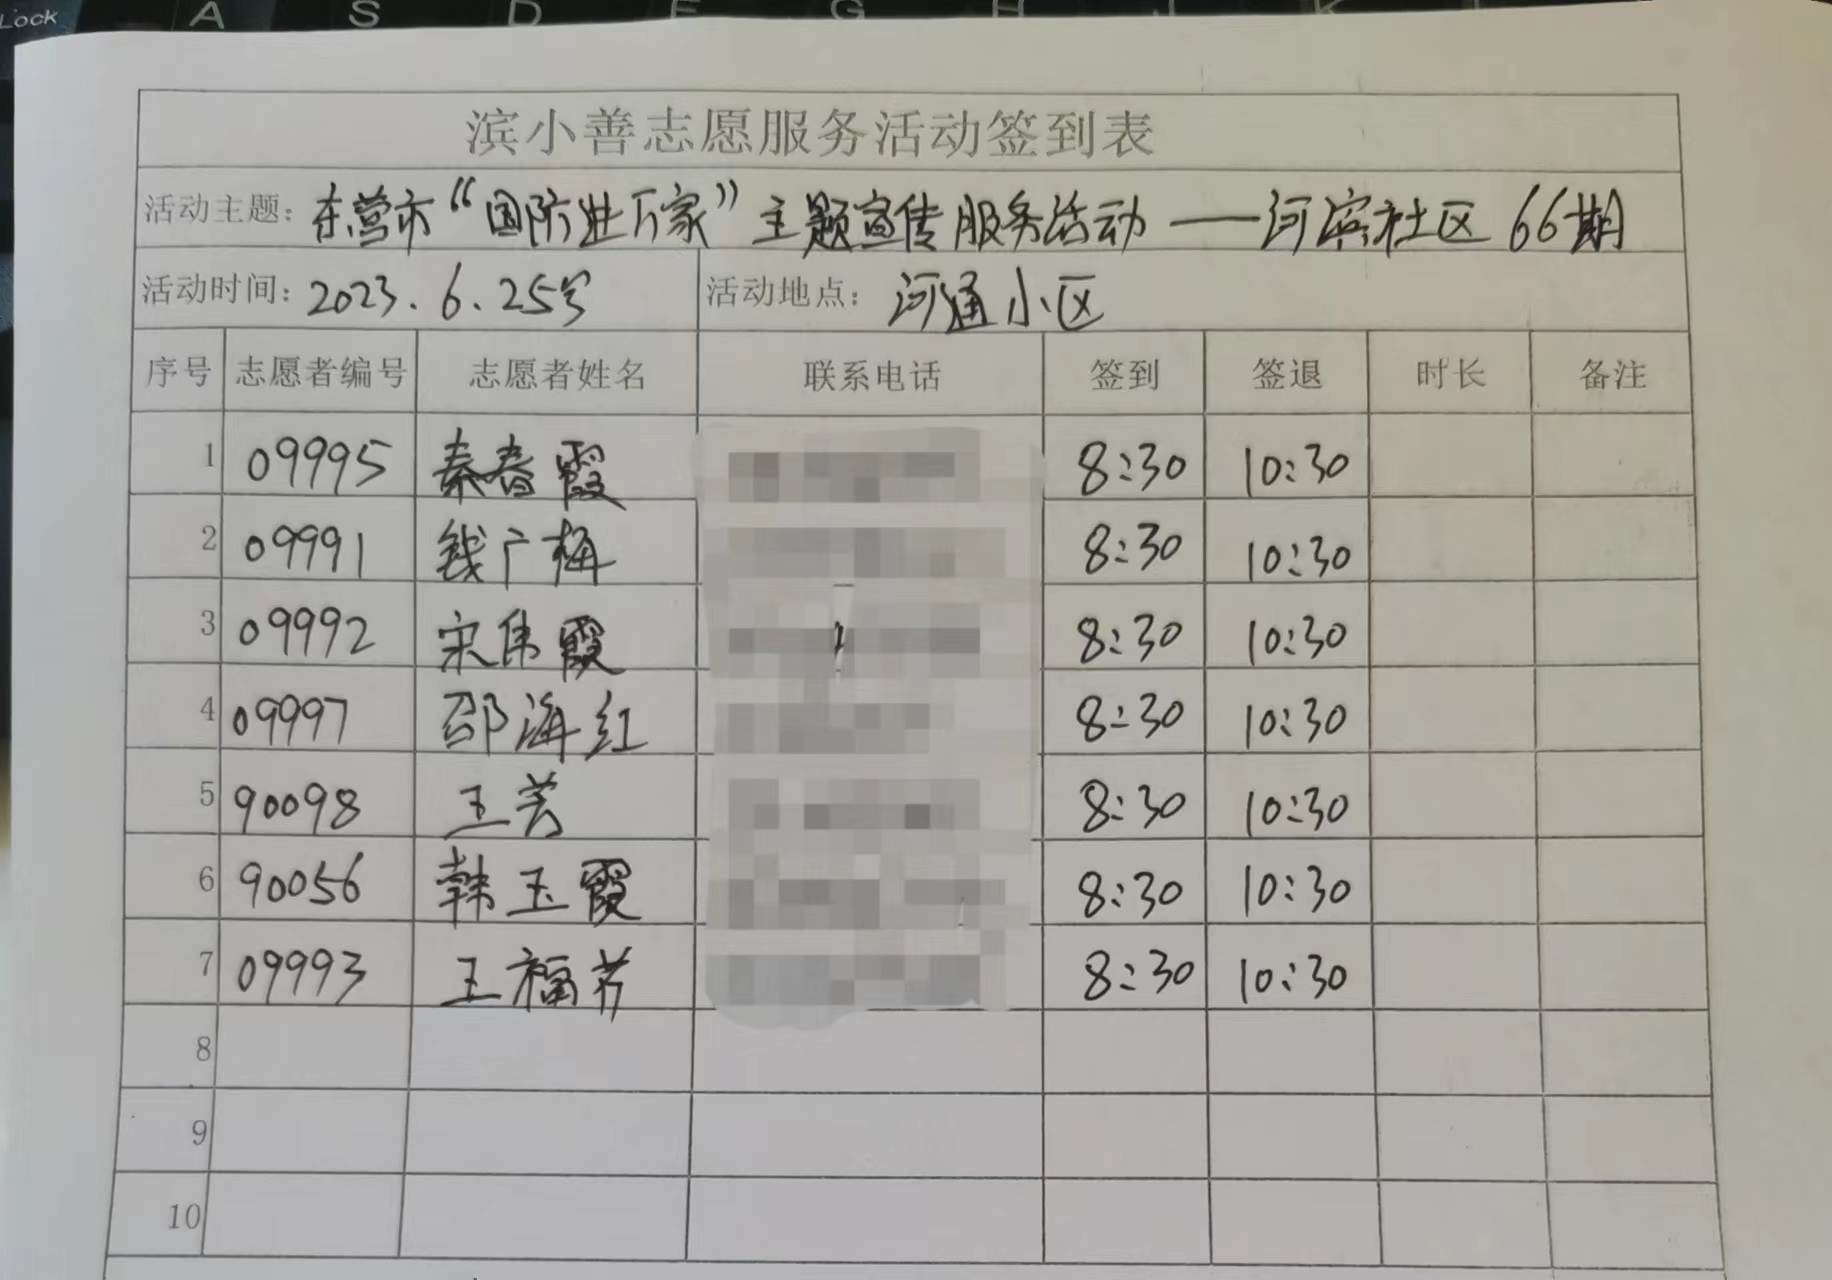 Lock A S D F G H J K L
滨小善志愿服务活动签到表
活动主题: 东营市“国防进万家”主题宣传服务活动——河滨社区 66期
活动时间: 2023.6.25号 活动地点: 河通小区
序号 志愿者编号 志愿者姓名 联系电话 签到 签退 时长 备注
1 09995 秦春霞 8:30 10:30
2 09991 钱广梅 8:30 10:30
3 09992 宋伟霞 8:30 10:30
4 09997 邵海红 8:30 10:30
5 90098 王芳 8:30 10:30
6 90056 韩玉霞 8:30 10:30
7 09993 王福芹 8:30 10:30
8
9
10